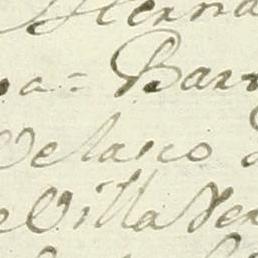 Herna
a = Barr
Velasco
e Villa Ver